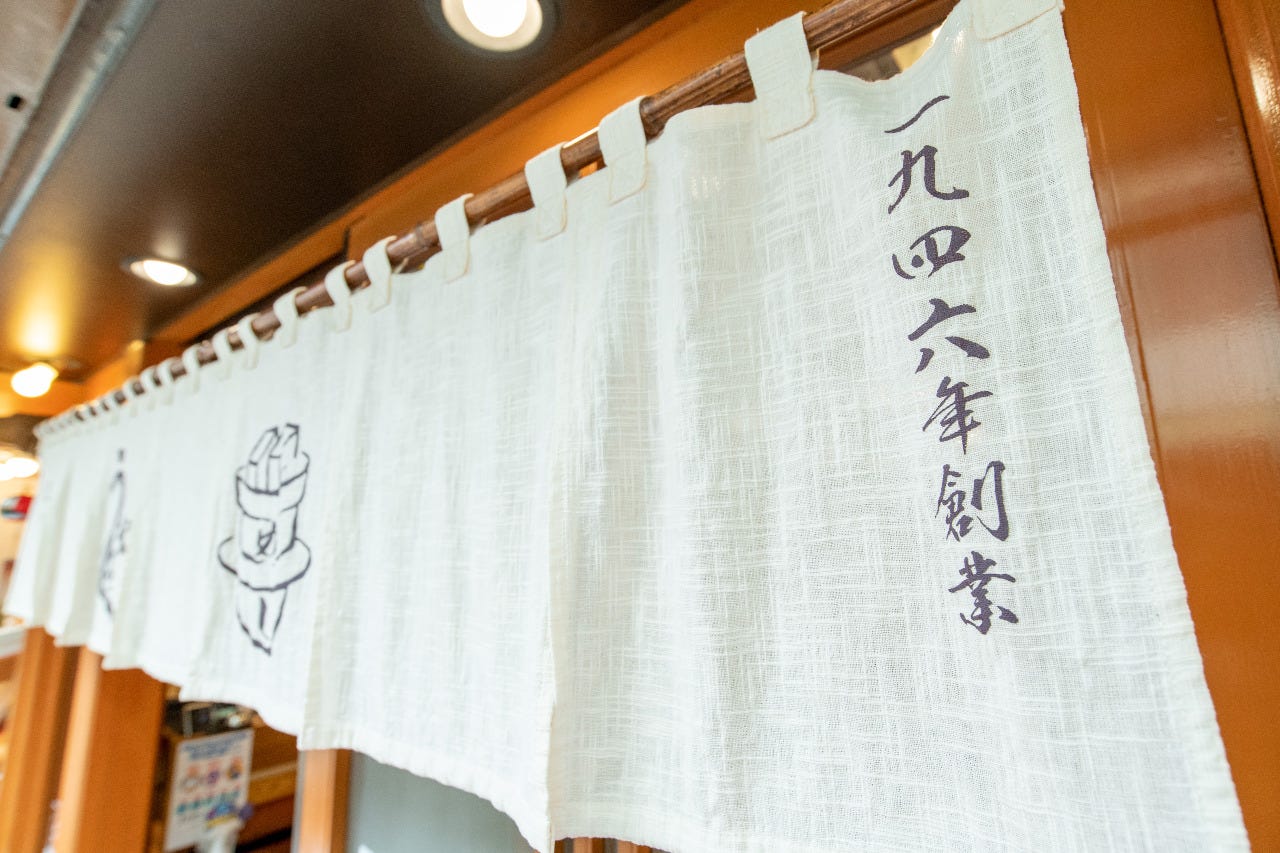 一九四六年創業